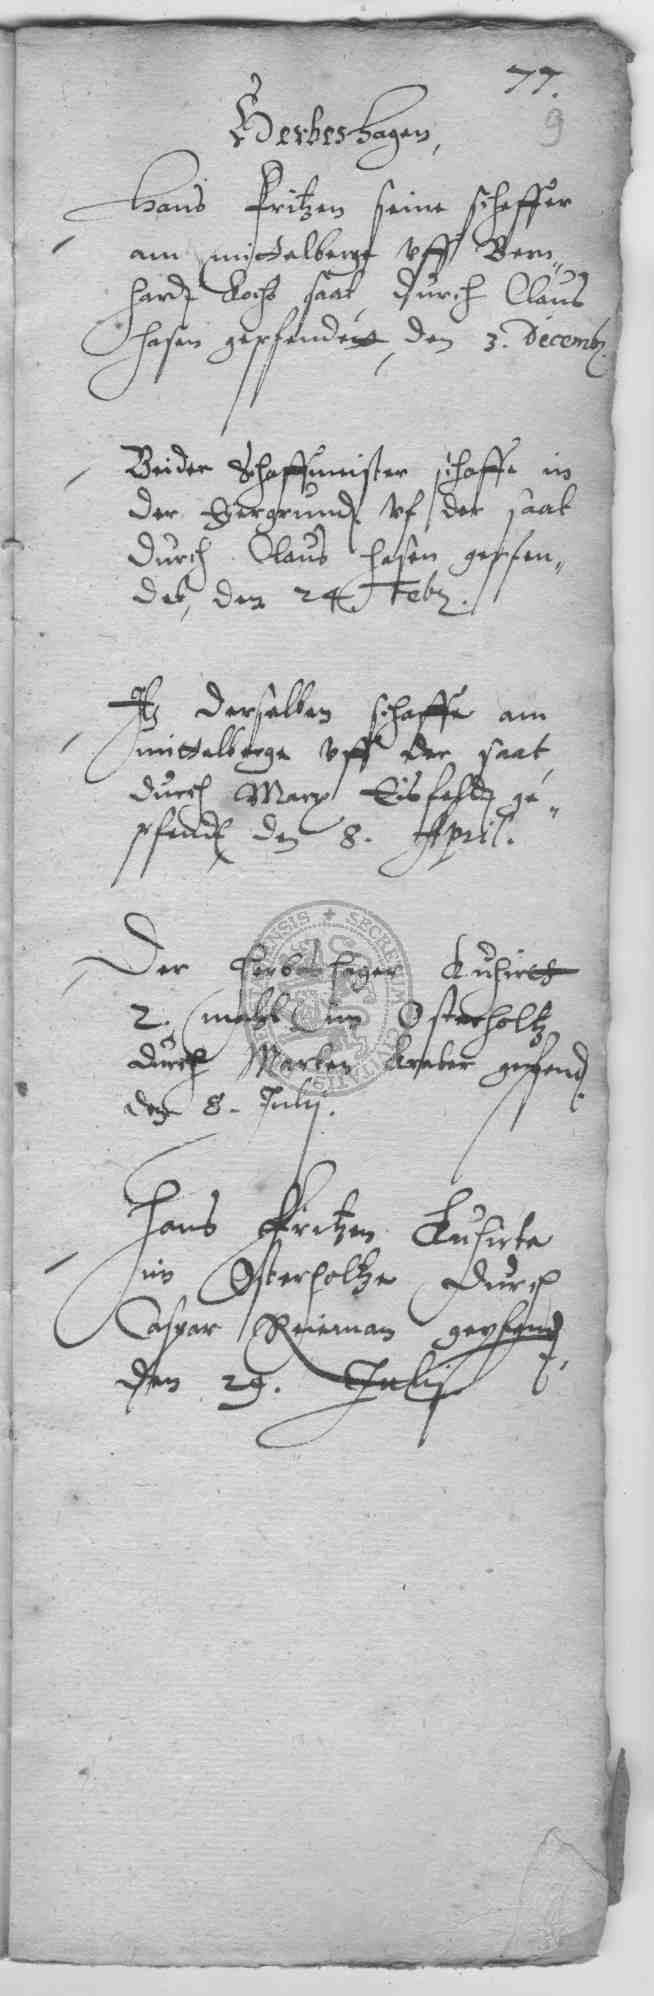 77.
9
Herbershagen,
Hans Fritzen seine scheffer
am mittelberge vff Bern„
hardt Kochs saat durch Claus
hasen gepfendett, den 3. Decemb.
Beider Schaffmeister schaffe in
der vf der saat
durch Claus hasen gepfen„
det, den 24. Feb.
It derselben schaffe am
mittelberge vff der saat
durch Marx Eisfeldt ge„
pfendt den 8. April.
Der Kuhirtt
2. mahl im Osterholtz
durch Marten gepfend.
den 8. Julij.
Hans Fritzen Kuhirte
im Osterholtze durch
Caspar Reieman gepfend.
den 29. Julij.
SECRETUM